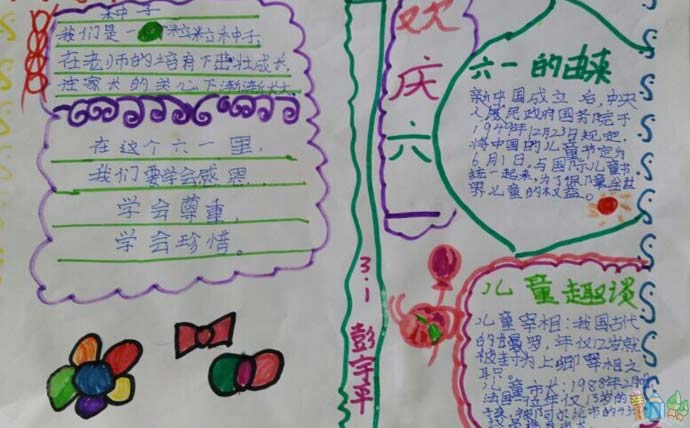 种子
我们是一粒粒种子,
在老师的培育下茁壮成长
在家长的关心下渐渐长大
在这个六一里,
我们要学会感恩,
学会尊重,
学会珍惜。
3.1 彭宇平
欢庆六一
六一的由来
新中国成立后,中央
人民政府国务院于
1949年12月23日规定,
将中国的儿童节定为
6月1日,与国际儿童节
统一起来。为了保障全世
界儿童的权益。
儿童趣谈
儿童宰相:我国古代
的甘罗,年仅12岁就
被封为上卿宰相之
职
儿童市长:1988年2月
法国一位年仅13岁的